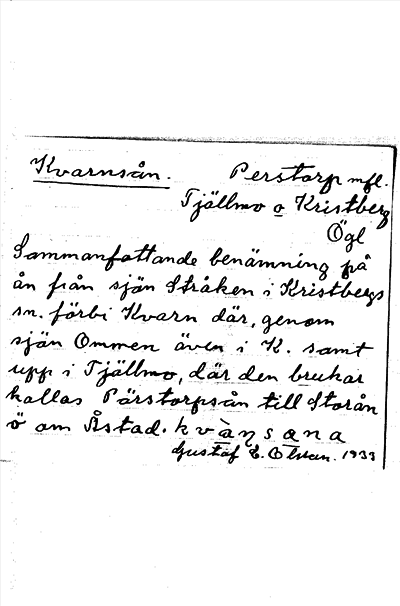 Kvarnsån. Perstorp mfl.
Tjällmo o Kristberg
Ögl
Sammanfattande benämning på
ån från sjön Stråken i Kristbergs
sn. förbi Kvarn där, genom
sjön Ommen även i K. samt
upp i Tjällmo, där den brukar
kallas Pärstorpsån till Storån
ö om Åstad. kvàŋsana
Gustaf E. Olsson. 1933